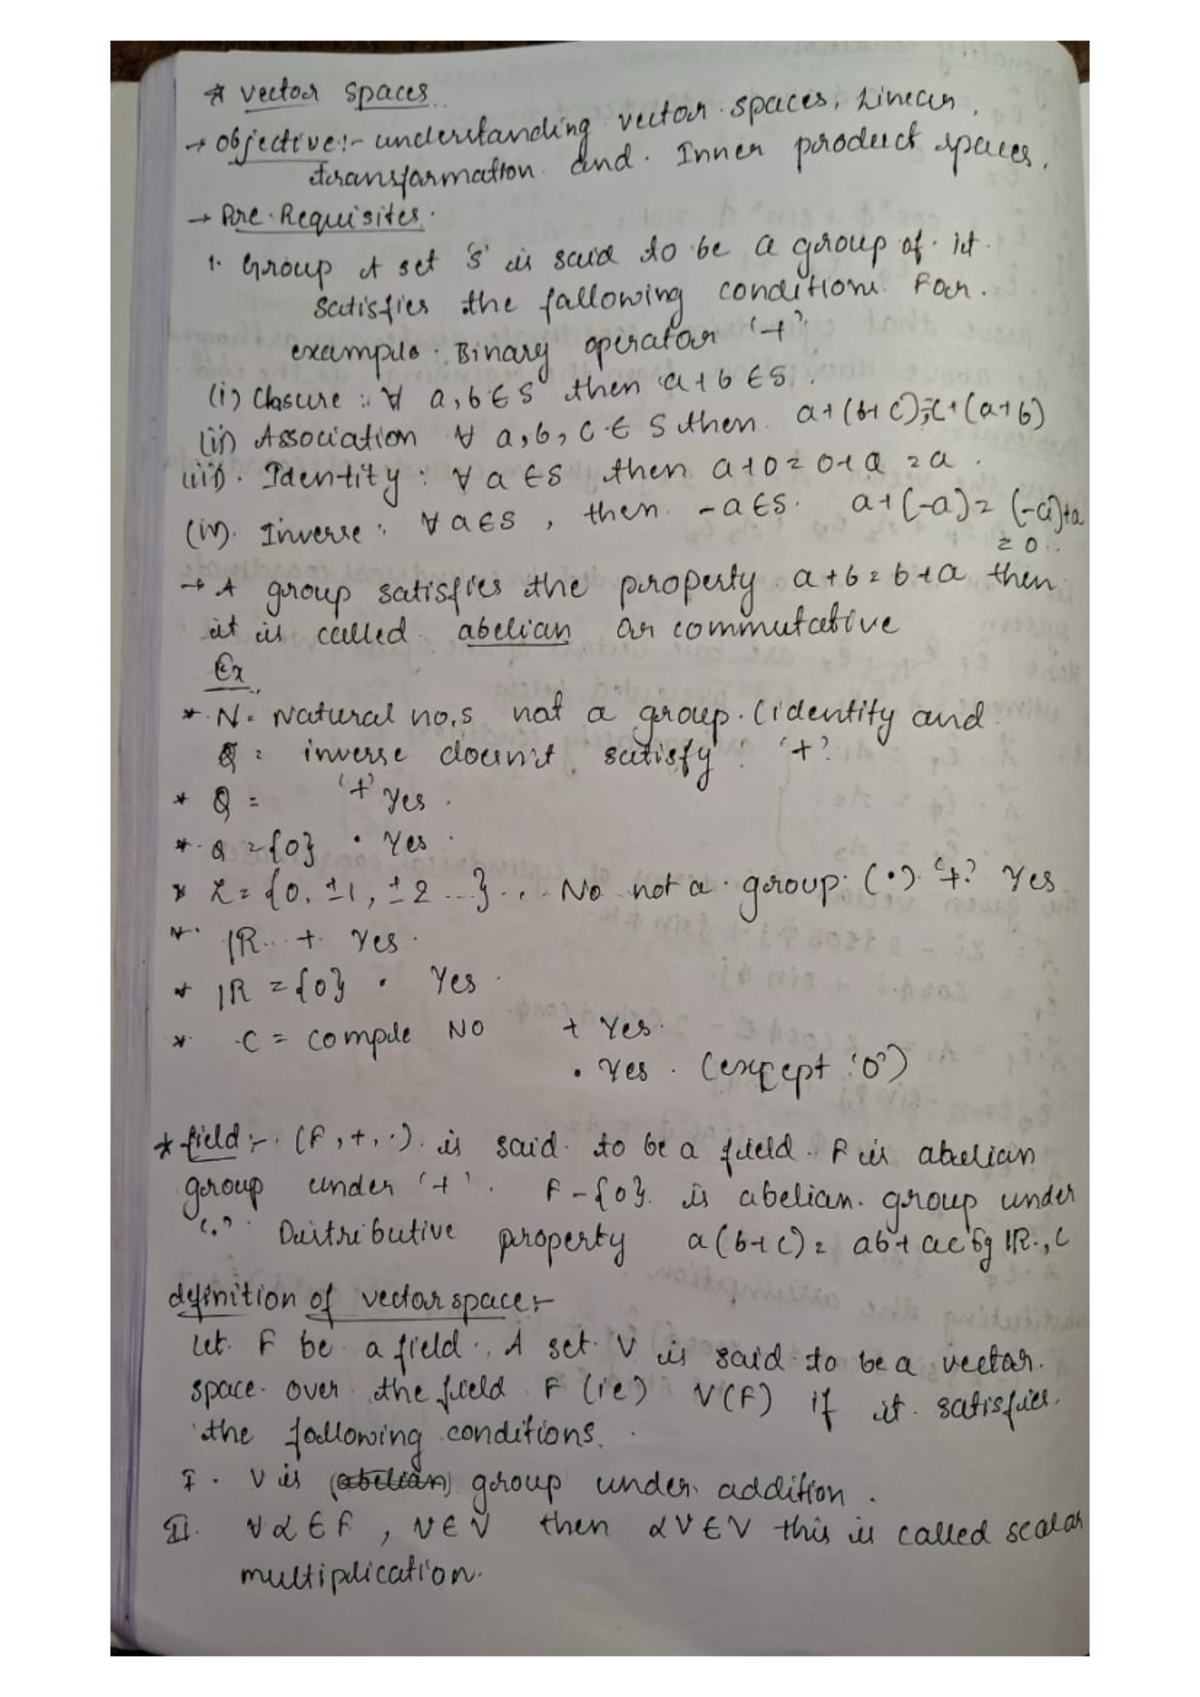 * Vector Spaces
→ Objective:- understanding vector spaces, Linear
transformation and Inner product spaces.
→ Pre-Requisites.
1. Group A set 'S' is said to be a group of it
satisfies the following condition For
example Binary operator '+'
(i) Closure : ∀ a, b ∈ S then a+b ∈ S.
(ii) Association ∀ a, b, c ∈ S then a+(b+c)=c+(a+b)
(iii) Identity : ∀ a ∈ S then a+0=0+a=a.
(iv) Inverse : ∀ a ∈ S, then -a ∈ S. a+(-a)=(-a)+a
=0
→ A group satisfies the property a+b=b+a then
it is called abelian or commutative
Ex
* N= Natural no,s not a group. (identity and
Q = inverse doesn't satisfy '+'
* Q = '+' Yes.
* Q = {0} • Yes.
* Z = {0, ±1, ±2 ...} . No not a group (•) '+' Yes
* IR + Yes.
* IR = {0} • Yes
* C = comple NO + Yes.
• Yes. (except '0')
* field :- (F, +, ·) is said to be a field F is abelian
group under '+'. F-{0} is abelian group under
'.' Distributive property a(b+c)= ab+ac Eg IR, C
definition of vector space:-
Let F be a field. A set V is said to be a vector
space over the field F (ie) V(F) if it satisfies
the following conditions.
I. V is (abelian) group under addition.
II. ∀ α ∈ F, v ∈ V then αV ∈ V this is called scalar
multiplication.